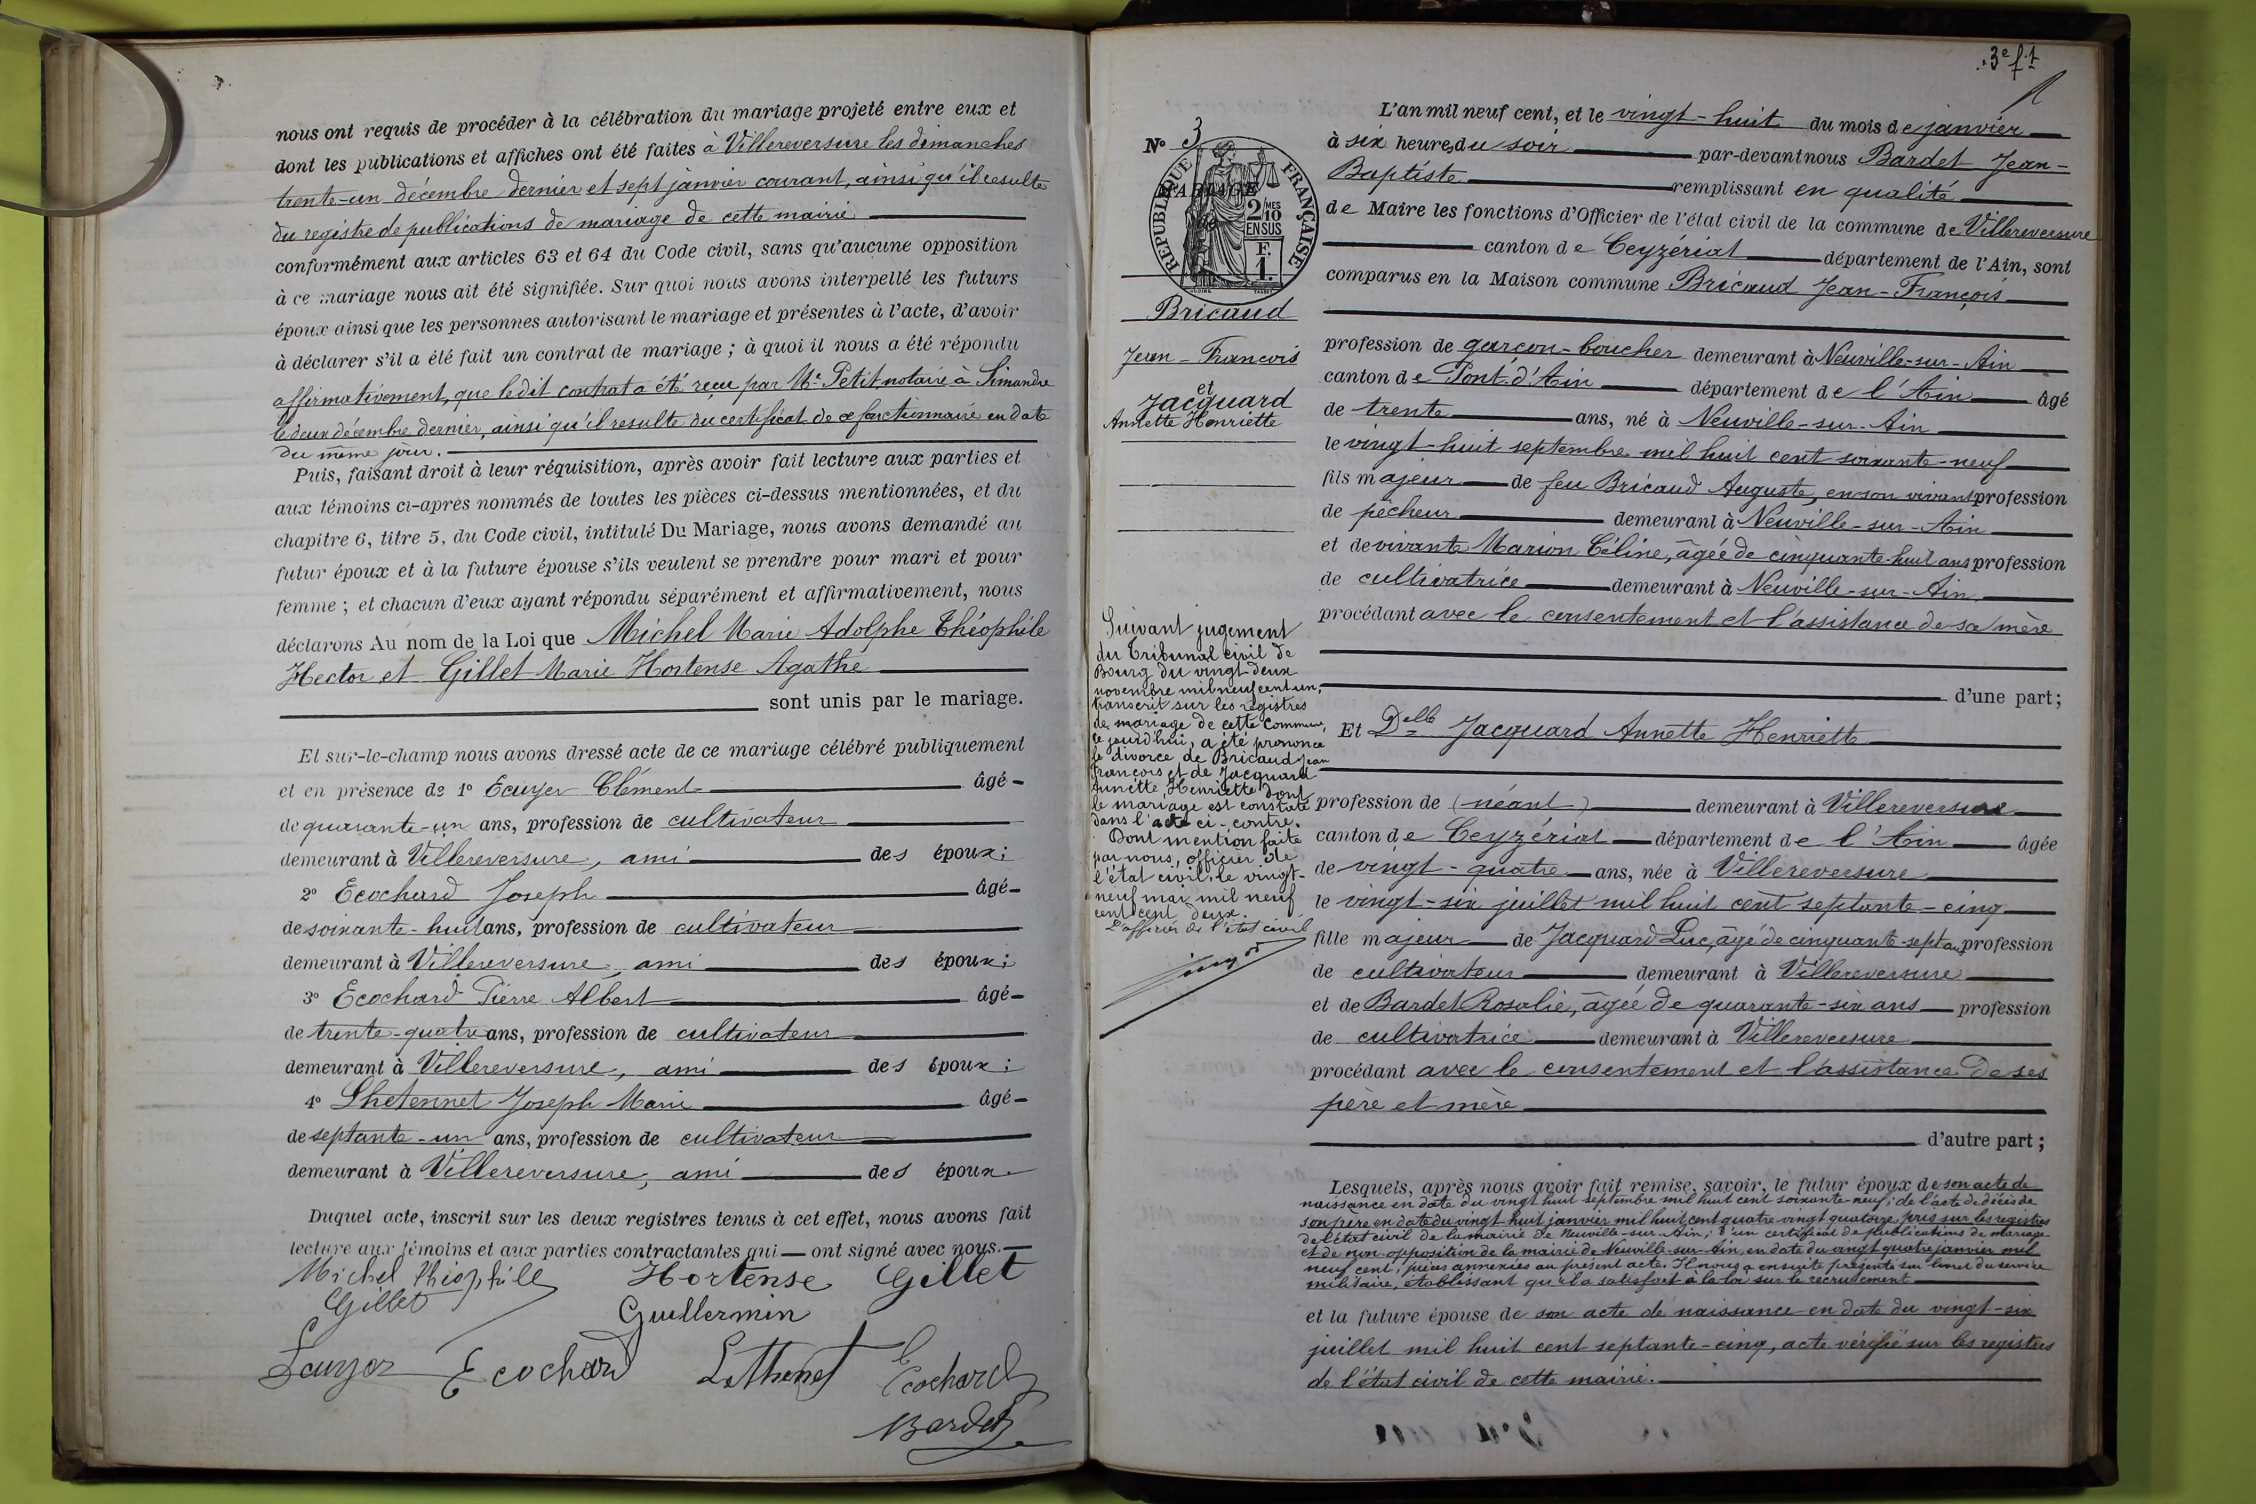 nous ont requis de procéder à la célébration du mariage projeté entre eux et
dont les publications et affiches ont été faites à Villereversure les dimanches
trente-un décembre dernier et sept janvier courant, ainsi qu'il résulte
du registre de publications de mariage de cette mairie
conformément aux articles 63 et 64 du Code civil, sans qu'aucune opposition
à ce mariage nous ait été signifiée. Sur quoi nous avons interpellé les futurs
époux ainsi que les personnes autorisant le mariage et présentes à l'acte, d'avoir
à déclarer s'il a été fait un contrat de mariage ; à quoi il nous a été répondu
affirmativement, que ledit contrat a été reçu par Me Petit notaire à Simandre
le deux décembre dernier, ainsi qu'il résulte du certificat de ce fonctionnaire en date
du même jour.
Puis, faisant droit à leur réquisition, après avoir fait lecture aux parties et
aux témoins ci-après nommés de toutes les pièces ci-dessus mentionnées, et du
chapitre 6, titre 5, du Code civil, intitulé Du Mariage, nous avons demandé au
futur époux et à la future épouse s'ils veulent se prendre pour mari et pour
femme ; et chacun d'eux ayant répondu séparément et affirmativement, nous
déclarons Au nom de la Loi que Michel Marie Adolphe Théophile
Hector et Gillet Marie Hortense Agathe
sont unis par le mariage.
Et sur-le-champ nous avons dressé acte de ce mariage célébré publiquement
et en présence de 1° Ecuyer Clément âgé
de quarante-un ans, profession de cultivateur
demeurant à Villereversure, ami des époux ;
2° Ecochard Joseph âgé
de soixante-huit ans, profession de cultivateur
demeurant à Villereversure, ami des époux ;
3° Ecochard Pierre Albert âgé
de trente-quatre ans, profession de cultivateur
demeurant à Villereversure, ami des époux ;
4° Lhetennet Joseph Marie âgé
de septante-un ans, profession de cultivateur
demeurant à Villereversure, ami des époux
Duquel acte, inscrit sur les deux registres tenus à cet effet, nous avons fait
lecture aux témoins et aux parties contractantes qui ont signé avec nous.
Michel Théophile Hortense Gillet
Gillet Guillermin
Ecuyer Ecochard Lethenet Ecochard
Bardet
3e ft
N° 3
MARIAGE
de
RÉPUBLIQUE FRANÇAISE
2/10 MES
EN SUS
1 F.
Bricaud
Jean-François
et
Jacquard
Annette Henriette
Suivant jugement
du Tribunal civil de
Bourg du vingt-deux
novembre mil neuf cent un,
transcrit sur les registres
de mariage de cette commune,
ce jourd'hui, a été prononcé
le divorce de Bricaud Jean
François et de Jacquard
Annette Henriette dont
le mariage est constaté
dans l'acte ci-contre.
Dont mention faite
par nous, officier de
l'état civil, le vingt-
neuf mai mil neuf
cent cent deux.
L'officier de l'état civil
L'an mil neuf cent, et le vingt-huit du mois de janvier
à six heures du soir par-devant nous Bardet Jean-
Baptiste remplissant en qualité
de Maire les fonctions d'Officier de l'état civil de la commune de Villereversure
canton de Ceyzériat département de l'Ain, sont
comparus en la Maison commune Bricaud Jean-François
profession de garçon-boucher demeurant à Neuville-sur-Ain
canton de Pont-d'Ain département de l'Ain âgé
de trente ans, né à Neuville-sur-Ain
le vingt-huit septembre mil huit cent soixante-neuf
fils majeur de feu Bricaud Auguste, en son vivant profession
de pêcheur demeurant à Neuville-sur-Ain
et de vivante Marion Céline, âgée de cinquante-huit ans profession
de cultivatrice demeurant à Neuville-sur-Ain
procédant avec le consentement et l'assistance de sa mère
d'une part ;
Et Delle Jacquard Annette Henriette
profession de (néant) demeurant à Villereversure
canton de Ceyzériat département de l'Ain âgée
de vingt-quatre ans, née à Villereversure
le vingt-six juillet mil huit cent septante-cinq
fille majeur de Jacquard Luc, âgé de cinquante-sept ans, profession
de cultivateur demeurant à Villereversure
et de Bardet Rosalie, âgée de quarante-six ans profession
de cultivatrice demeurant à Villereversure
procédant avec le consentement et l'assistance de ses
père et mère
d'autre part ;
Lesquels, après nous avoir fait remise, savoir, le futur époux de son acte de
naissance en date du vingt huit septembre mil huit cent soixante-neuf ; de l'acte de décès de
son père en date du vingt-huit janvier mil huit cent quatre vingt quatorze, pris sur les registres
de l'état civil de la mairie de Neuville-sur-Ain ; d'un certificat de publications de mariage
et de non-opposition de la mairie de Neuville-sur-Ain, en date du vingt quatre janvier mil
neuf cent ; pièces annexées au présent acte. Il nous a ensuite présenté son livret du service
militaire, établissant qu'il a satisfait à la loi sur le recrutement
et la future épouse de son acte de naissance en date du vingt-six
juillet mil huit cent septante-cinq, acte vérifié sur les registres
de l'état civil de cette mairie.